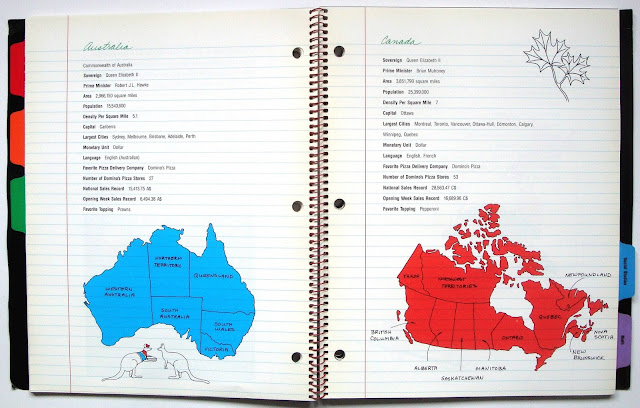 Australia
Commonwealth of Australia
Sovereign Queen Elizabeth II
Prime Minister Robert J.L. Hawke
Area square miles
Population
Density Per Square Mile 5.1
Capital Canberra
Largest Cities Sydney, Melbourne, Brisbane, Adelaide, Perth
Monetary Unit Dollar
Language English (Australian)
Favorite Pizza Delivery Company Domino's Pizza
Number of Domino's Pizza Stores 37
National Sales Record 15,415.75 A$
Opening Week Sales Record 6,494.36 A$
Favorite Topping Prawns
NORTHERN
TERRITORY
QUEENSLAND
WESTERN
AUSTRALIA
SOUTH
AUSTRALIA
SOUTH
WALES
VICTORIA
Canada
Sovereign Queen Elizabeth II
Prime Minister Brian Mulroney
Area 3,851,790 square miles
Population 25,399,000
Density Per Square Mile 7
Capital Ottawa
Largest Cities Montreal, Toronto, Vancouver, Ottawa-Hull, Edmonton, Calgary,
Winnipeg, Quebec
Monetary Unit Dollar
Language English, French
Favorite Pizza Delivery Company Domino's Pizza
Number of Domino's Pizza Stores 53
National Sales Record 29,563.47 C$
Opening Week Sales Record 16,689.96 C$
Favorite Topping Pepperoni
YUKON
NORTHWEST
TERRITORIES
NEWFOUNDLAND
QUEBEC
BRITISH
COLUMBIA
ONTARIO
NOVA
SCOTIA
NEW
BRUNSWICK
ALBERTA
MANITOBA
SASKATCHEWAN
Social Studies
Math